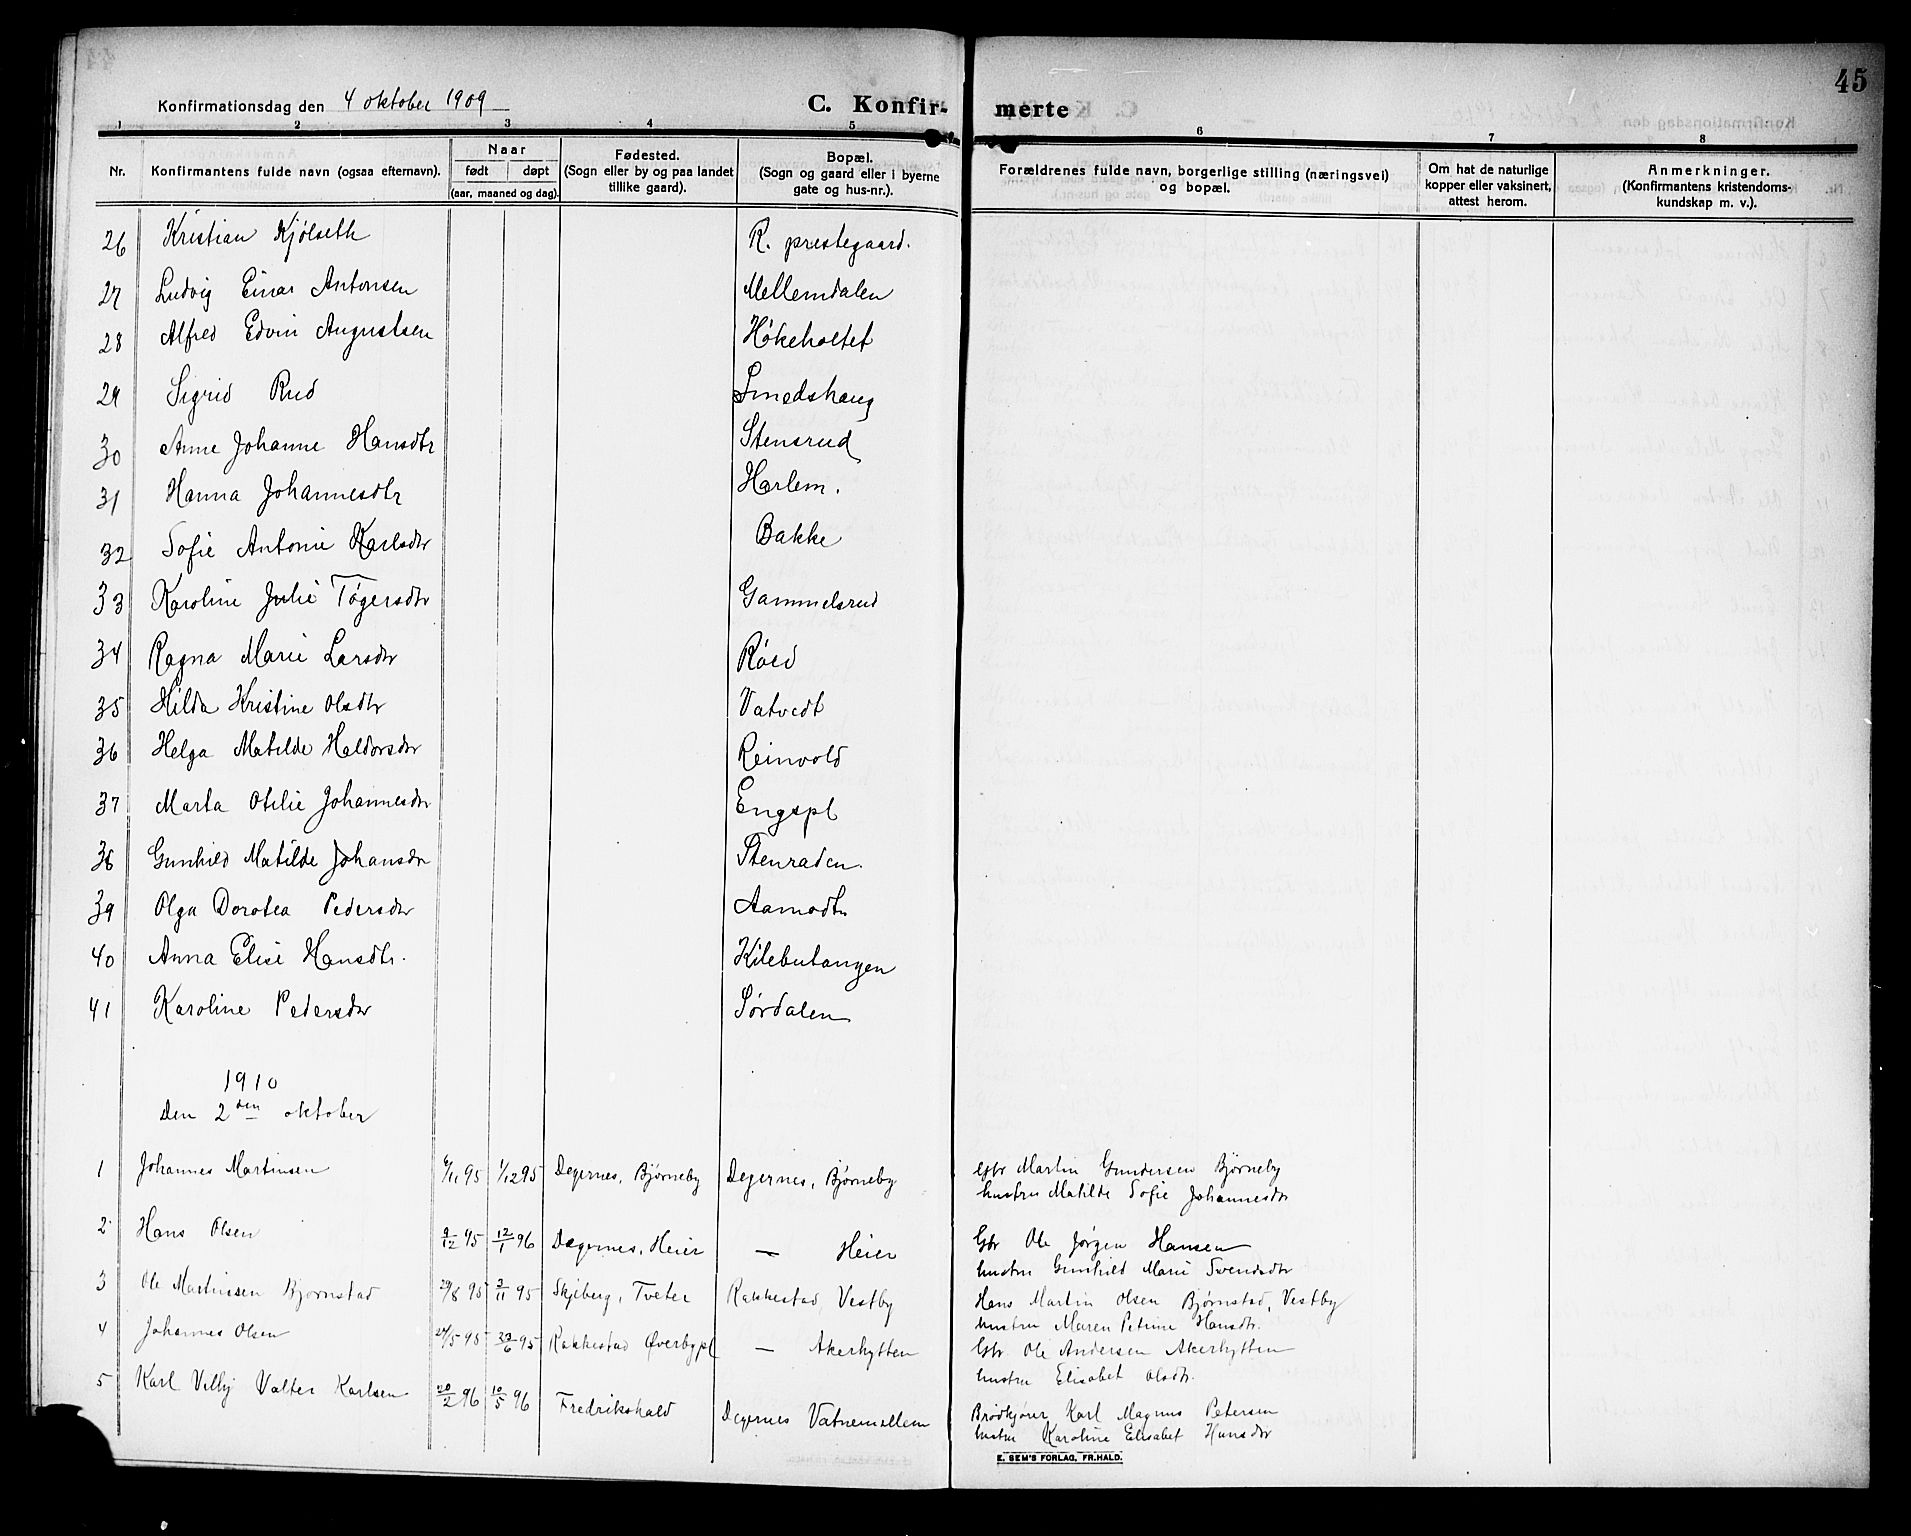 45
Konfirmationsdag den 4 oktober 1909
C. Konfirmerte
1 2 3 4 5 6 7 8
Nr. Konfirmantens fulde navn (ogsaa efternavn). Naar født døpt (aar, maaned og dag). Fødested. (Sogn eller by og paa landet tillike gaard). Bopæl. (Sogn og gaard eller i byerne gate og hus-nr.). Forældrenes fulde navn, borgerlige stilling (næringsvei) og bopæl. Om hat de naturlige kopper eller vaksinert, attest herom. Anmerkninger. (Konfirmantens kristendomskundskap m. v.).
26 Kristian Kjølseth R. prestegaard.
27 Ludvig Einar Antonsen Mellemdalen
28 Alfred Edvin Augustsen Høkeholtet
29 Sigrid Rud Smedshaug
30 Anne Johanne Hansdtr Stensrud
31 Hanna Johannesdtr Harlem.
32 Sofie Antonie Karlsdtr Bakke
33 Karoline Julie Tøgersdtr Gammelsrud
34 Ragna Marie Larsdtr Røed
35 Hilda Kristine Olsdtr Vatvedt
36 Helga Matilde Haldorsdtr Reinvold
37 Marta Otilie Johannesdtr Engspl
38 Gunhild Matilde Johansdtr Stenraden.
39 Olga Dorotea Pedersdtr Aamodt
40 Anna Elise Hansdtr. Kilebutangen
41 Karoline Pedersdtr Sørdalen
1910
Den 2den oktober
1 Johannes Martinsen 6/11 95 1/12 95 Degernes, Bjørneby Degernes, Bjørneby Gbr Martin Gundersen Bjørneby
hustru Matilde Sofie Johannesdtr
2 Hans Olsen 9/12 95 12/1 96 Degernes, Heier — Heier Gbr Ole Jørgen Hansen
hustru Gunhild Marie Svendsdtr
3 Ole Martinsen Bjørnstad 29/8 95 3/11 95 Skjeberg, Tveter Rakkestad, Vestby Hans Martin Olsen Bjørnstad, Vestby
hustru Maren Petrine Hansdtr.
4 Johannes Olsen 24/5 95 23/6 95 Rakkestad Øverbypl — Akerhytten Gbr Ole Andersen Akerhytten
hustru Elisabet Olsdtr.
5 Karl Villy Valter Karlsen 20/2 96 10/5 96 Fredrikshald Degernes Vatnemellem Brødkjører Karl Magnus Petersen
hustru Karoline Elisabet Hansdtr
E. SEM'S FORLAG, FR.HALD.